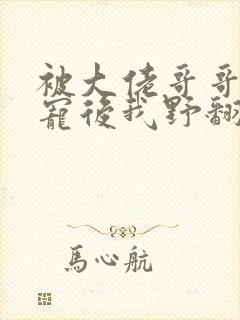 被大佬哥哥
寵後我野翻
馬心航